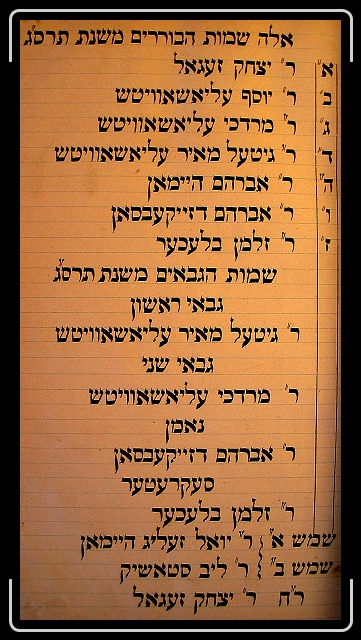 אלה שמות הבוררים משנת תרס״ג
א׳ ר׳ יצחק זעגאל
ב׳ ר׳ יוסף עליאשאוויטש
ג׳ ר׳ מרדכי עליאשאוויטש
ד׳ ר׳ גיטעל מאיר עליאשאוויטש
ה׳ ר׳ אברהם היימאן
ו׳ ר׳ אברהם דזייקעבסאן
ז׳ ר׳ זלמן בלעכער
שמות הגבאים משנת תרס״ג
גבאי ראשון
ר׳ גיטעל מאיר עליאשאוויטש
גבאי שני
ר׳ מרדכי עליאשאוויטש
נאמן
ר׳ אברהם דזייקעבסאן
סעקרעטער
ר׳ זלמן בלעכער
שמש א׳ ר׳ יואל זעליג היימאן
שמש ב׳ ר׳ ליב סטאשיק
ר״ח ר׳ יצחק זעגאל